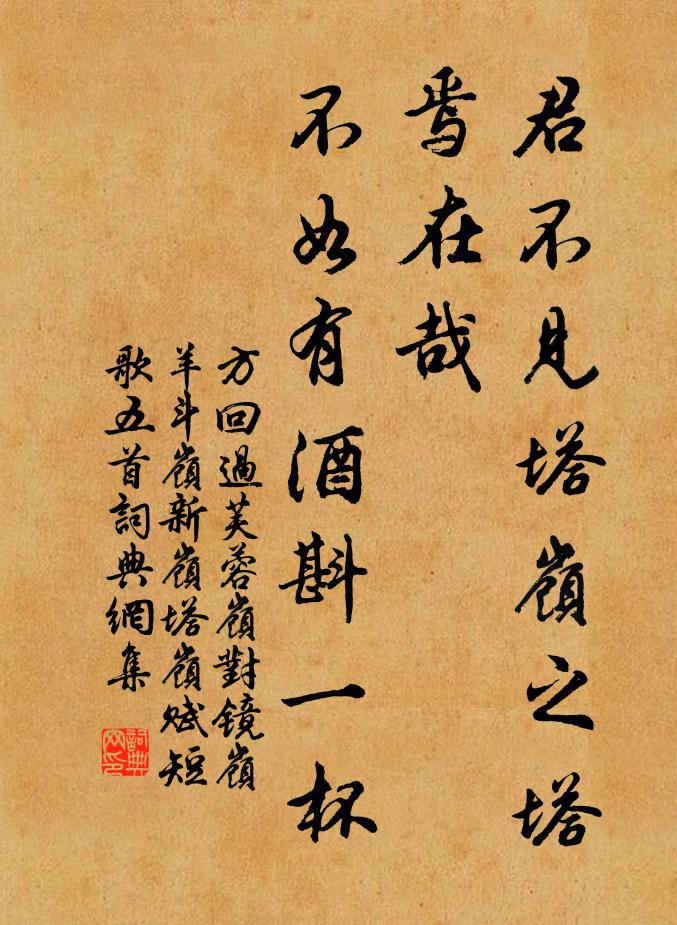 君不見塔嶺之塔
焉在哉
不如有酒斟一杯
方回過芙蓉嶺對镜嶺
羊斗嶺新嶺塔嶺賦短
歌五首詞典網集
詞典
网印